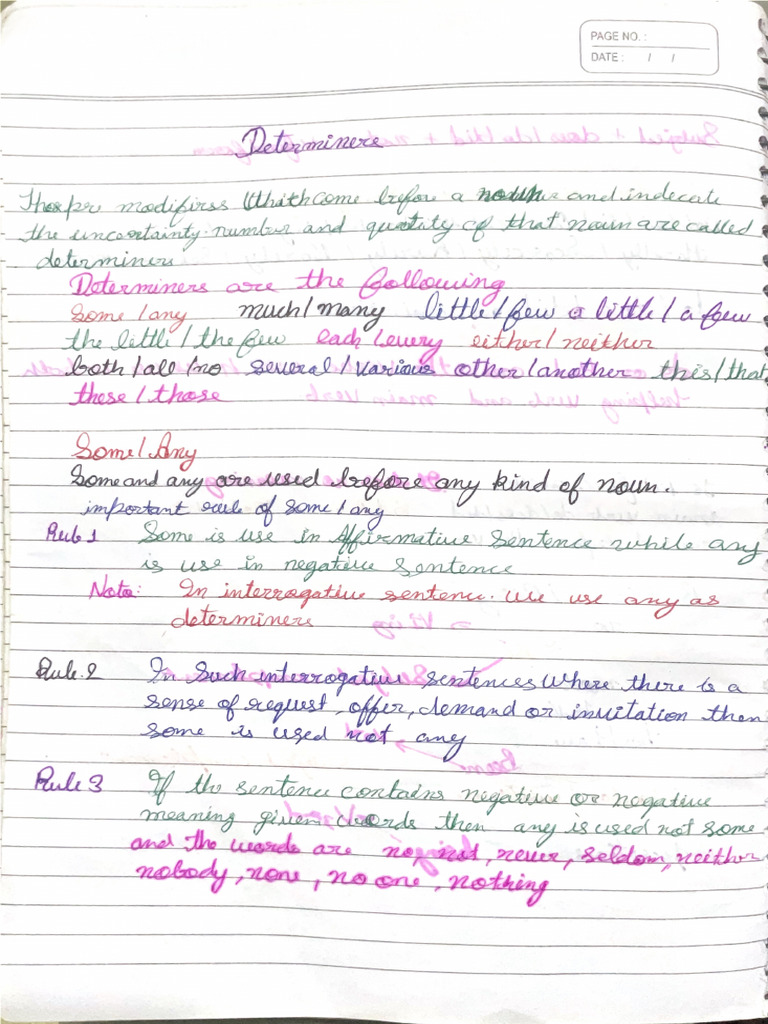 PAGE NO. :
DATE : / /
Determiners
modifirss come before a noun and indecate
the uncertainty number and quantity of that noun are called
determiners
Determiners are the following
Some/any much/many little/few a little/a few
the little/the few each/every either/neither
both/all/no several/various other/another this/that
these/those
Some/Any
Some and any are used before any kind of noun.
important rule of some/any
Rule 1 Some is use in Affirmative Sentence while any
is use in negative Sentence
Note: In interrogative sentence. we use any as
determiners
Rule.2 In Such interrogative sentences Where there is a
sense of request, offer, demand or invitation then
some is used not any
Rule 3 If the sentence contains negative or negative
meaning given words then any is used not some
and the words are no, not, never, seldom, neither
nobody, none, no one, nothing